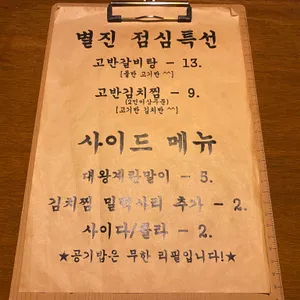 별진 점심특선
고반갈비탕 - 13.
[물반 고기반 ^^]
고반김치찜 - 9.
(2인이상주문)
[고기반 김치반 ^^]
사이드 메뉴
대왕계란말이 - 5.
김치찜 밀떡사리 추가 - 2.
사이다/콜라 - 2.
★공기밥은 무한 리필입니다!★